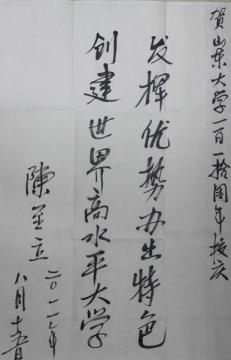 贺山东大学一百一拾周年校庆
发挥优势办出特色
创建世界高水平大学
陈至立
二〇一一年
八月十五日